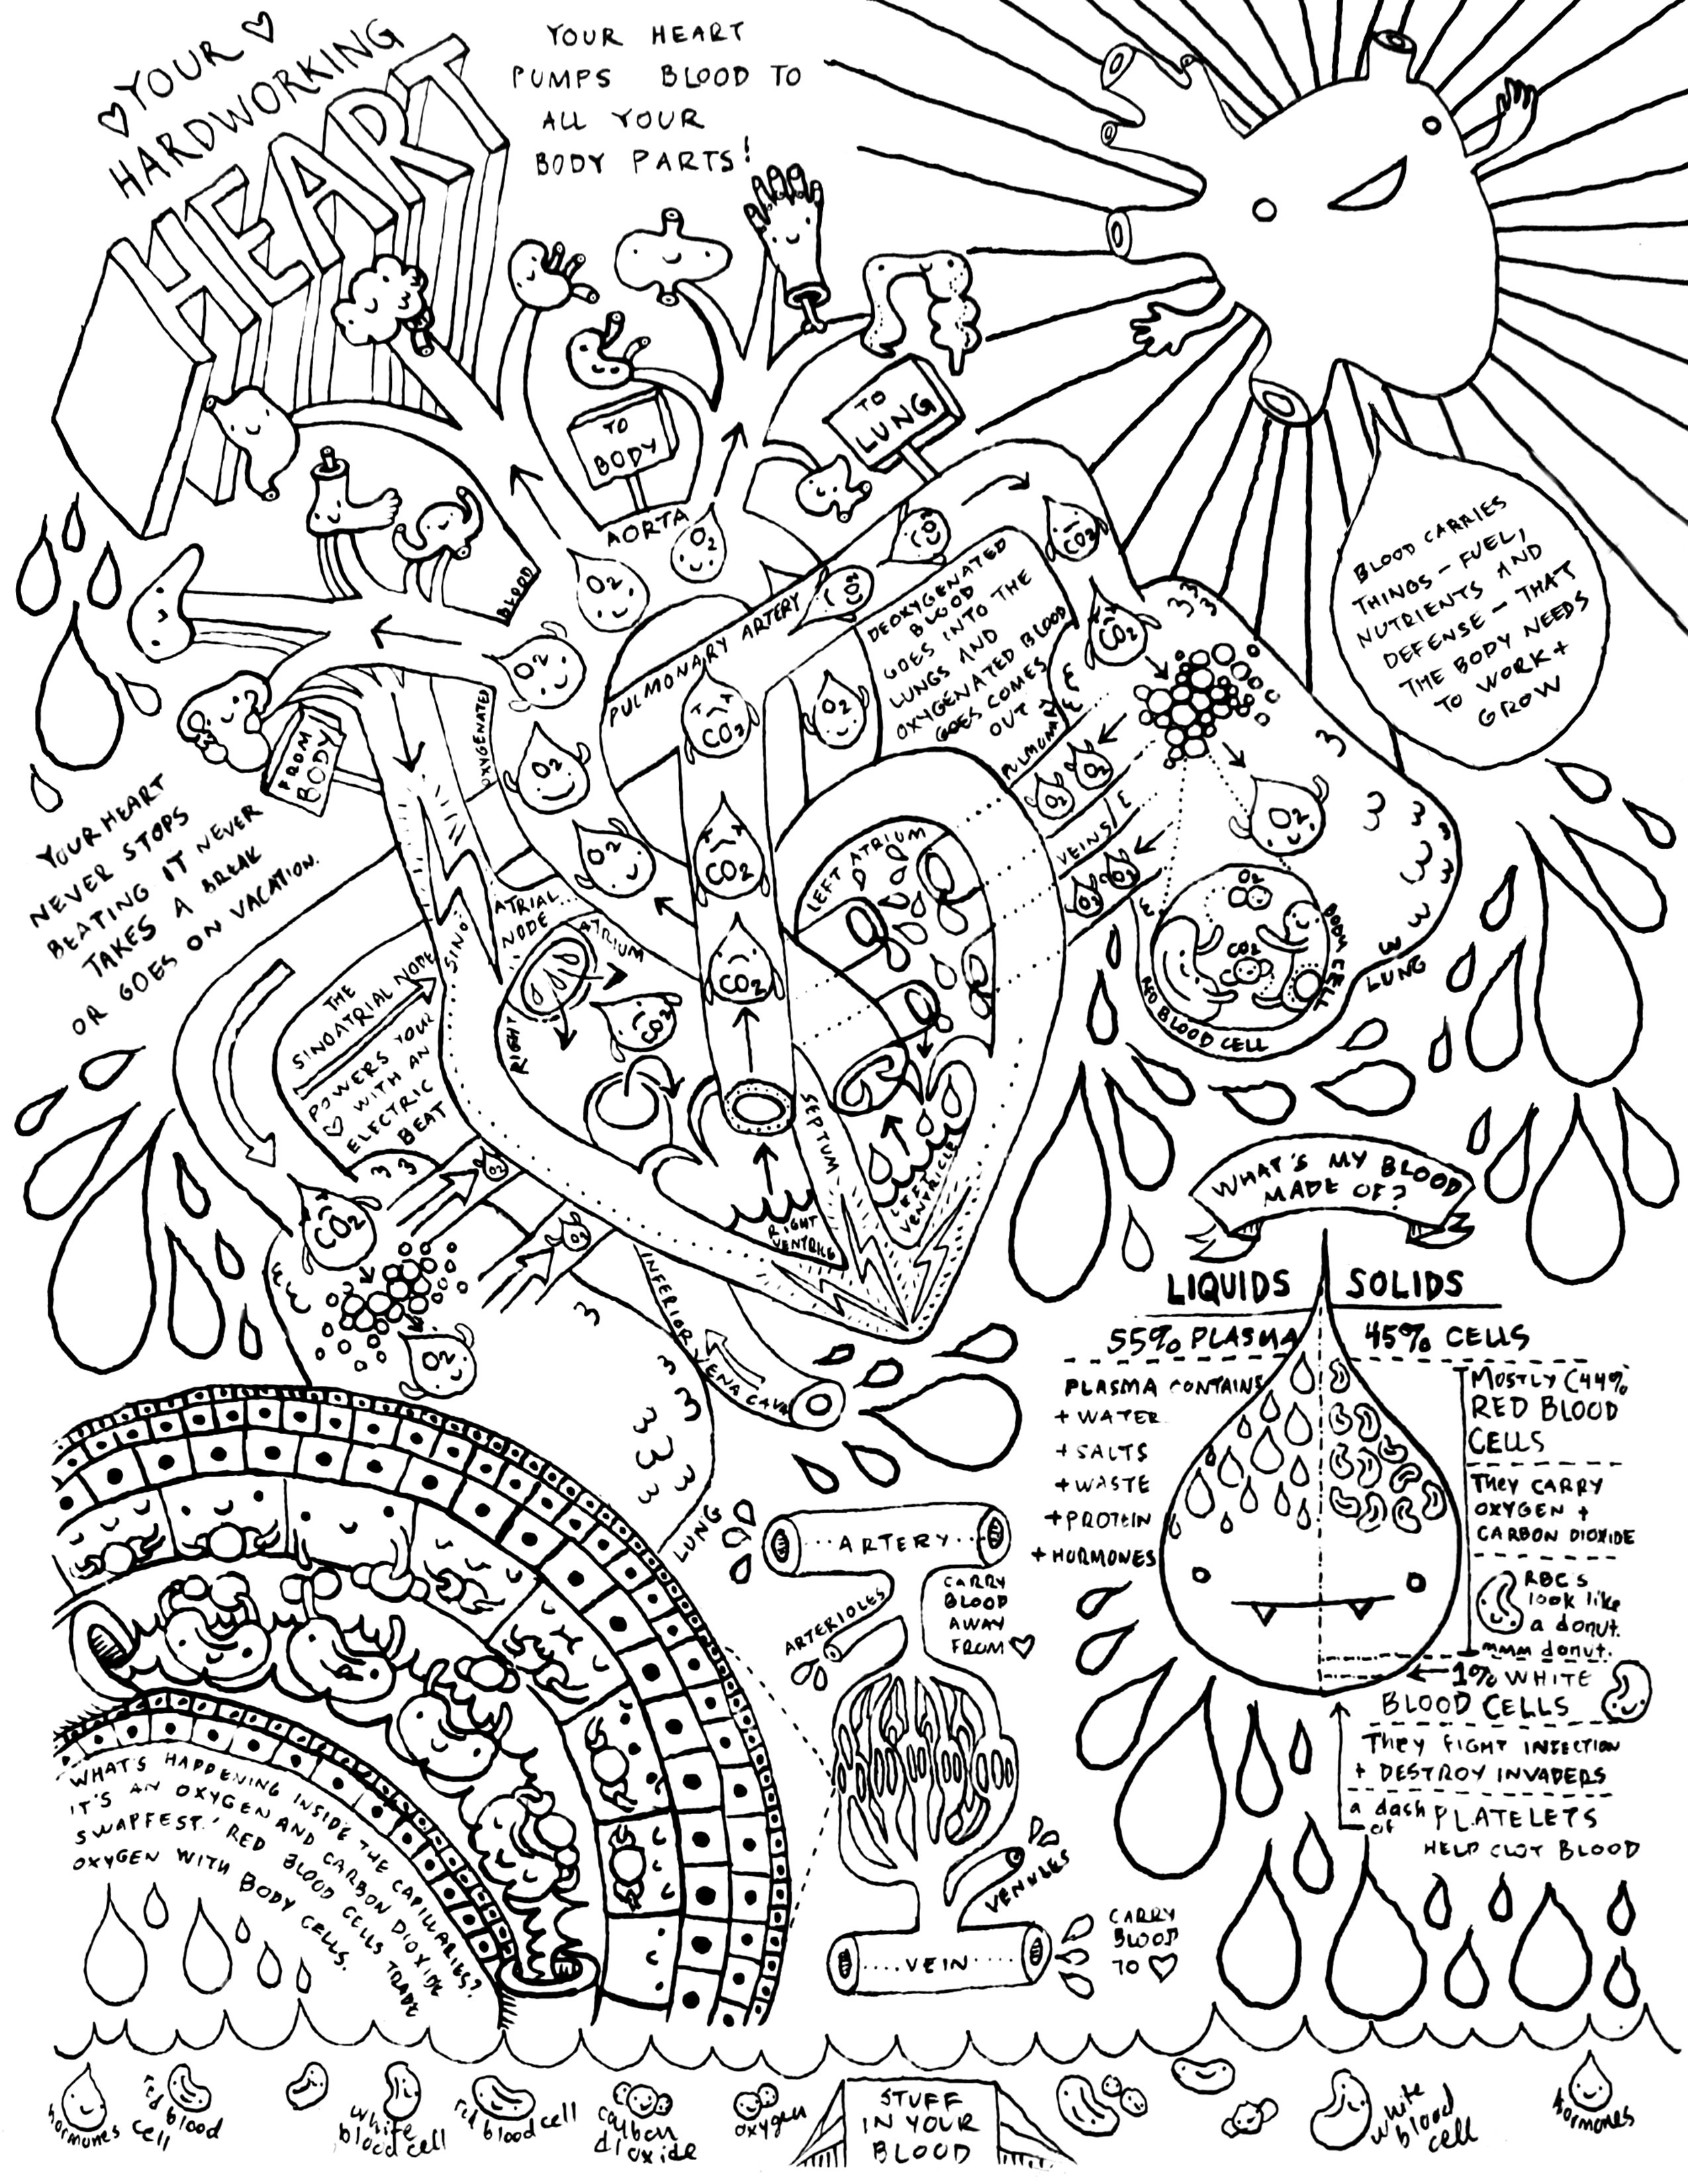 YOUR
HARDWORKING
HEART
YOUR HEART
PUMPS BLOOD TO
ALL YOUR
BODY PARTS!
TO
BODY
TO
LUNG
AORTA
BLOOD
OXYGENATED
FROM
BODY
PULMONARY ARTERY
DEOXYGENATED
BLOOD
GOES INTO THE
LUNGS AND
OXYGENATED BLOOD
GOES COMES
OUT
PULMONARY
VEINS
BLOOD CARRIES
THINGS - FUEL,
NUTRIENTS AND
DEFENSE - THAT
THE BODY NEEDS
TO WORK +
GROW
O2
O2
O2
O2
O2
O2
CO2
CO2
CO2
CO2
CO2
CO2
CO2
CO2
O2
O2
O2
O2
O2
O2
YOUR HEART
NEVER STOPS
BEATING IT NEVER
TAKES A BREAK
OR GOES ON VACATION.
THE
SINOATRIAL NODE
POWERS YOUR
♡ WITH AN
ELECTRIC
BEAT
SINO
ATRIAL...
NODE
RIGHT
ATRIUM
CO2
LEFT ATRIUM
SEPTUM
RIGHT
VENTRICLE
LEFT
VENTRICLE
O2
CO2
RED BLOOD CELL
BODY CELL
LUNG
CO2
O2
O2
O2
INFERIOR VENA CAVA
LUNG
WHAT'S MY BLOOD
MADE OF?
LIQUIDS
SOLIDS
55% PLASMA
45% CELLS
PLASMA CONTAINS
+ WATER
+ SALTS
+ WASTE
+ PROTEIN
+ HORMONES
MOSTLY (44%
RED BLOOD
CELLS
THEY CARRY
OXYGEN +
CARBON DIOXIDE
RBC'S
look like
a donut.
mmm donut.
1% WHITE
BLOOD CELLS
They FIGHT INFECTION
+ DESTROY INVADERS
a dash
of
PLATELETS
HELP CLOT BLOOD
ARTERY
CARRY
BLOOD
AWAY
FROM ♡
ARTERIOLES
VENULES
VEIN
CARRY
BLOOD
TO ♡
WHAT'S HAPPENING INSIDE THE CAPILLARIES?
IT'S AN OXYGEN AND CARBON DIOXIDE
SWAPFEST! RED BLOOD CELLS TRADE
OXYGEN WITH BODY CELLS.
hormones
red blood
cell
white
blood cell
red blood cell
carbon
dioxide
oxygen
STUFF
IN YOUR
BLOOD
white
blood
cell
hormones